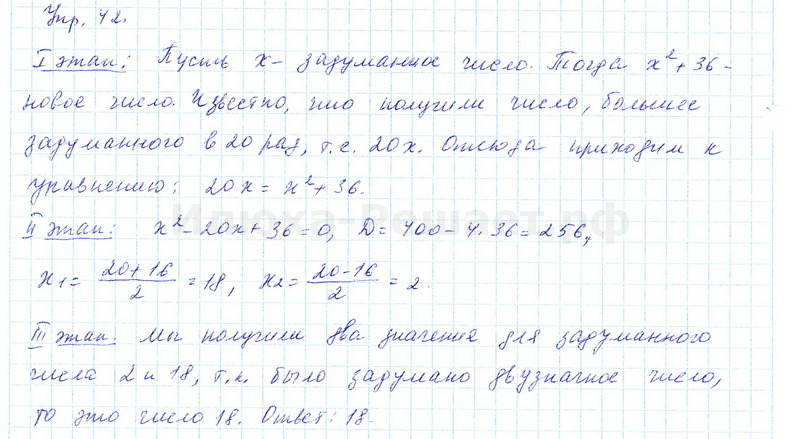 Упр. 42.
I этап: Пусть x - задуманное число. Тогда x² + 36 -
новое число. Известно, что получили число, большее
задуманного в 20 раз, т.е. 20x. Отсюда приходим к
уравнению: 20x = x² + 36.
II этап: x² - 20x + 36 = 0, D = 400 - 4·36 = 256,
x₁ = (20+16)/2 = 18, x₂ = (20-16)/2 = 2.
III этап: Мы получили два значения для задуманного
числа 2 и 18, т.к. было задумано двузначное число,
то это число 18. Ответ: 18.
Илюха-Решает.рф